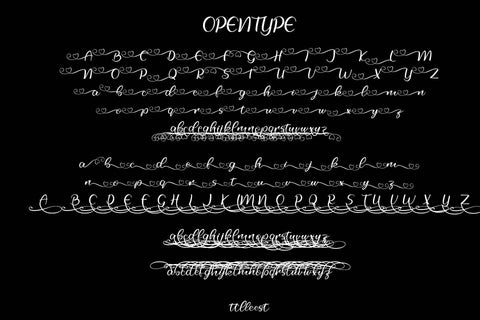 OPENTYPE
A B C D E F G H I J K L M
N O P Q R S T U V W X Y Z
a b c d e f g h i j k l m n
o p q r s t u v w x y z
abcdefghijklmnopqrstuvwxyz
a b c d e f g h i j k l m
n o p q r s t u v w x y z
A B C D E F G H I J K L M N O P Q R S T U V W X Y Z
abcdefghijklmnopqrstuvwxyz
abcdefghijklmnopqrstuvwxyz